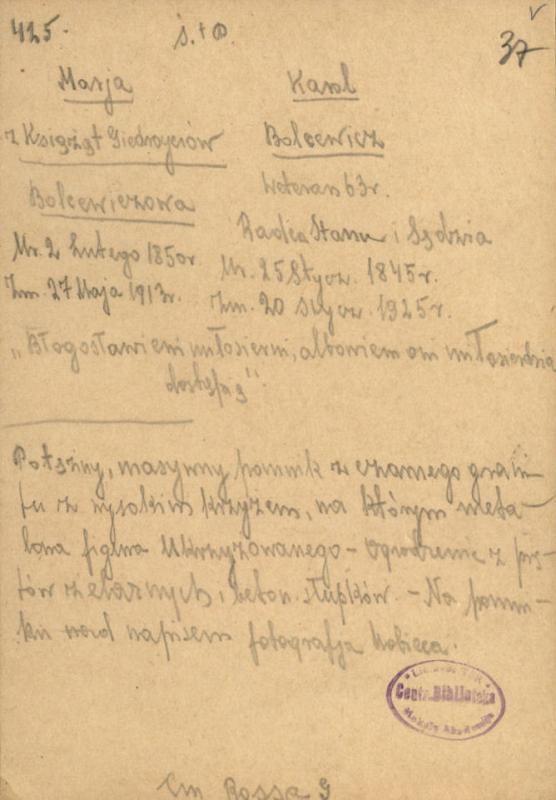 425.
ś. + P.
37
Marja
z Książąt Giedroyciów
Bolcewiczowa
Ur. 2 Lutego 1850r.
Zm. 27 Maja 1913r.
Karol
Bolcewicz
Weteran 63r.
Radca Stanu i Sędzia
Ur. 25 Stycz. 1845r.
Zm. 20 stycz. 1925r.
„Błogosławieni miłosierni, albowiem oni miłosierdzia
dostąpią"
Potężny, masywny pomnik z czarnego grani-
tu z wysokim krzyżem, na którym meta-
lowa figura Ukrzyżowanego - Ogrodzenie z prę-
tów żelaznych i beton. słupków. - Na pomni-
ku nad napisem fotografja kobieca.
Centr. Biblioteka
Mokslų Akademija
Cm Rossa 9